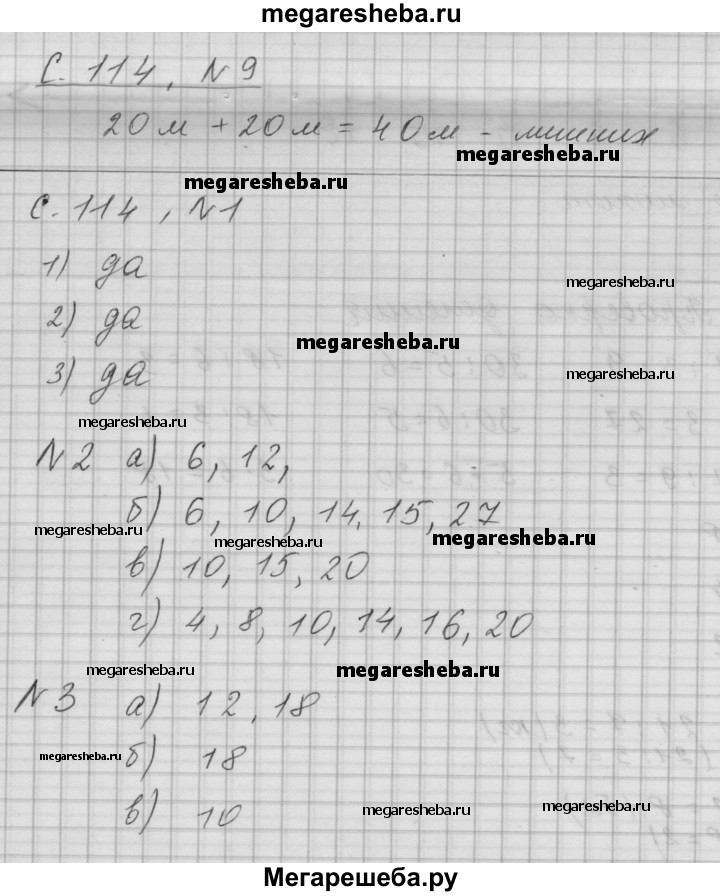 megaresheba.ru
С. 114, N 9
20 м + 20 м = 40 м -
megaresheba.ru
megaresheba.ru
С. 114, N 1
1) да
megaresheba.ru
2) да
megaresheba.ru
3) да
megaresheba.ru
megaresheba.ru
N 2 а) 6, 12,
б) 6, 10, 14, 15, 27
megaresheba.ru
megaresheba.ru
megaresheba.ru
в) 10, 15, 20
г) 4, 8, 10, 14, 16, 20
megaresheba.ru
megaresheba.ru
N 3 а) 12, 18
megaresheba.ru
б) 18
в) 10
megaresheba.ru
megaresheba.ru
Мегарешеба.ру